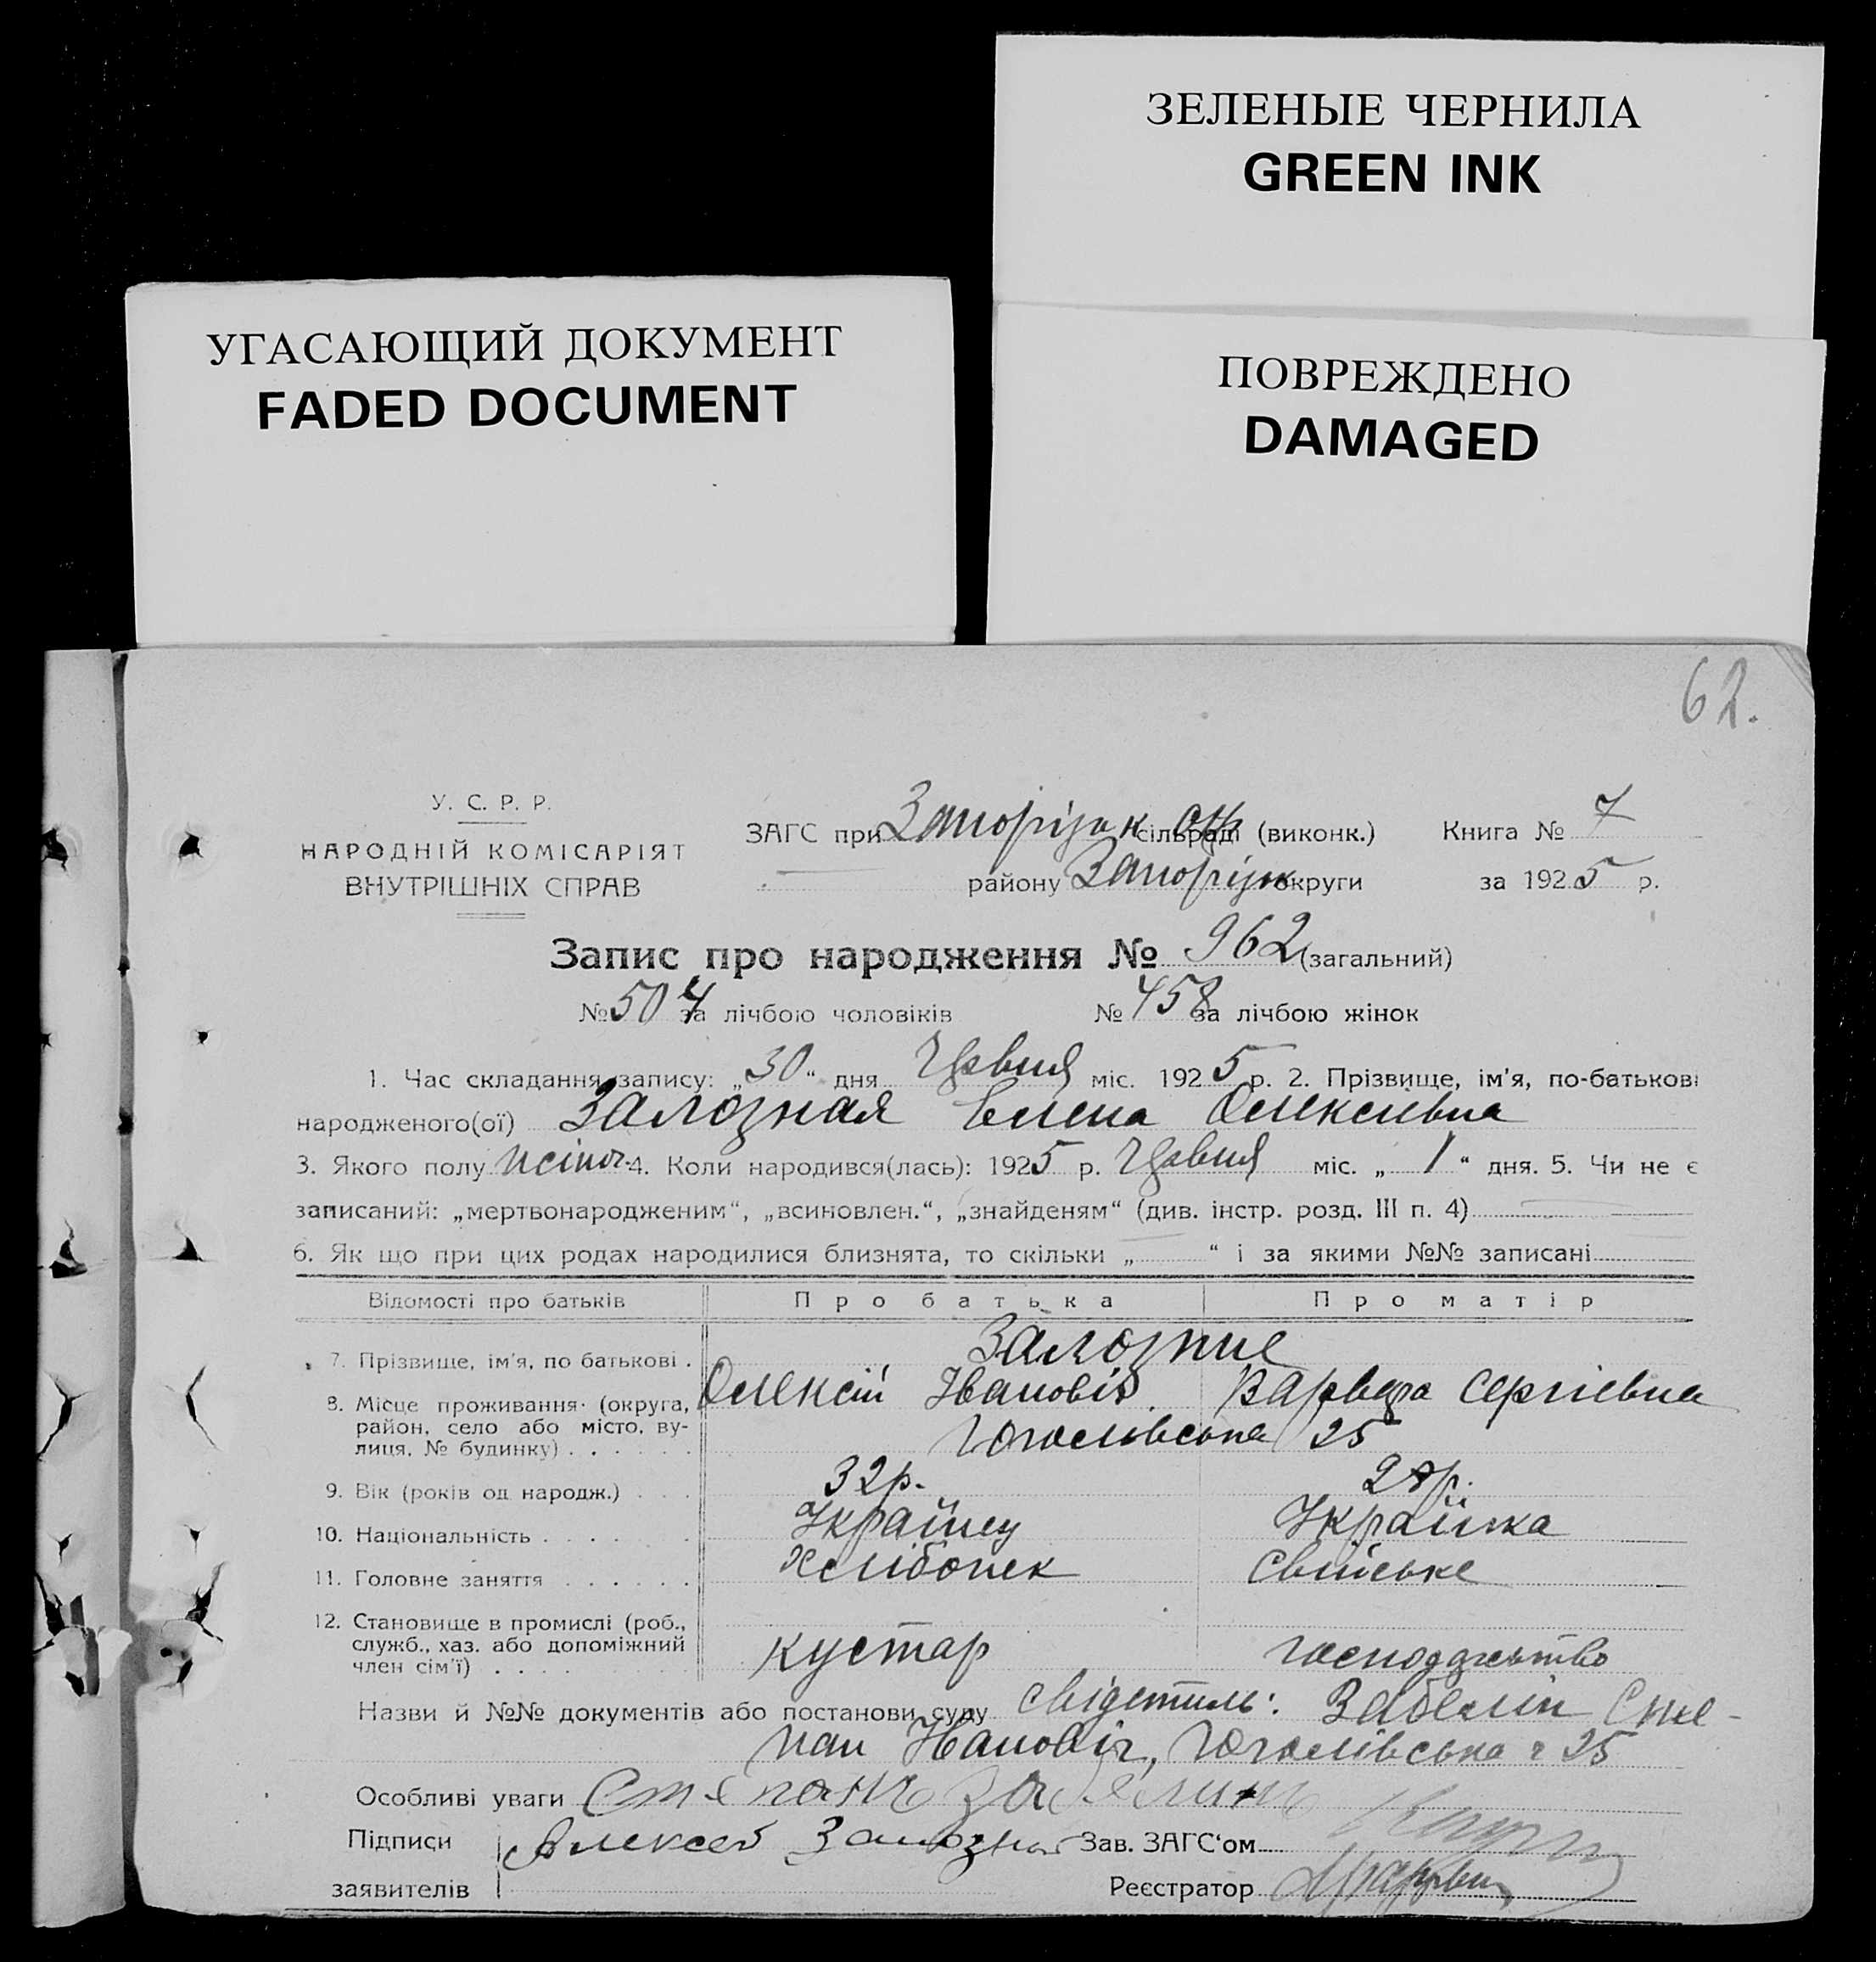 ЗЕЛЕНЫЕ ЧЕРНИЛА
GREEN INK
УГАСАЮЩИЙ ДОКУМЕНТ
FADED DOCUMENT
ПОВРЕЖДЕНО
DAMAGED
62.
У. С. Р. Р.
НАРОДНІЙ КОМІСАРІЯТ
ВНУТРІШНІХ СПРАВ
ЗАГС при Запоріzьк сільраді (виконк.) Книга № 7
району Запоріzьк округи за 1925 р.
Запис про народження № 962 (загальний)
№ 504 за лічбою чоловіків № 458 за лічбою жінок
1. Час складання запису: „30“ дня Червня міс. 1925 р. 2. Прізвище, ім'я, по-батькові
народженого(ої) Залозная Елена Олексіевна
3. Якого полу жіноч. 4. Коли народився(лась): 1925 р. Червня міс. „1“ дня. 5. Чи не є
записаний: „мертвонародженим“, „всиновлен.“, „знайденям“ (див. інстр. розд. III п. 4)
6. Як що при цих родах народилися близнята, то скільки „ “ і за якими №№ записані
Відомості про батьків Про батька Про матір
7. Прізвище, ім'я, по батькові . Залозние
Олексій Івановіч. Варвара Сергіевна
8. Місце проживання (округа, район, село або місто, ву-
лиця, № будинку) . . . . . . Гоголівська 25
9. Вік (років од народж.) . . . 32 р. 28 р.
10. Національність . . . . . Українец Українка
11. Головне заняття . . . . . . Хлібопек Свійське
12. Становище в промислі (роб.,
служб., хаз. або допоміжний
член сім'ї) . . . . кустар господарьство
Назви й №№ документів або постанови суду свідетиль: Забелін Сте-
пан Івановіч, Гоголівська 25
Особливі уваги Степанъ Забелинъ
Підписи Алексей Залозной Зав. ЗАГС'ом
заявителів Реєстратор